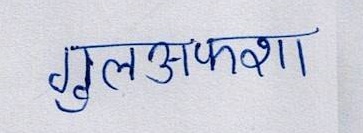 गुलअफशा